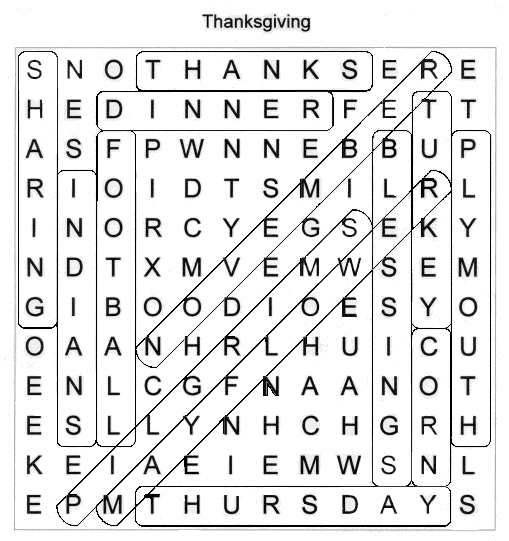 Thanksgiving
S N O T H A N K S E R E
H E D I N N E R F E T T
A S F P W N N E B B U P
R I O I D T S M I L R L
I N O R C Y E G S E K Y
N D T X M V E M W S E M
G I B O O D I O E S Y O
O A A N H R L H U I C U
E N L C G F N A A N O T
E S L L Y N H C H G R H
K E I A E I E M W S N L
E P M T H U R S D A Y S